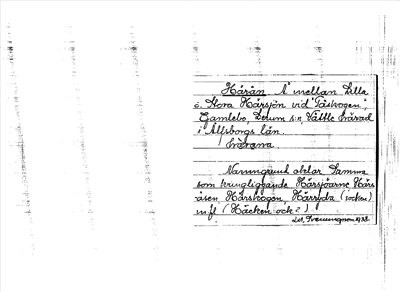 Hårån. Å mellan Lilla
o. Stora Hårsjön vid "Påskogen",
Gamlebo, Lerum s:n, Vättle härad
i Älfsborgs län.

Namngrund oklar. Samma
som kringliggande Hårsjöarne, Hårs
åsen, Hårskogen, Härryda (socken)
m.fl. (Häcken ock?)